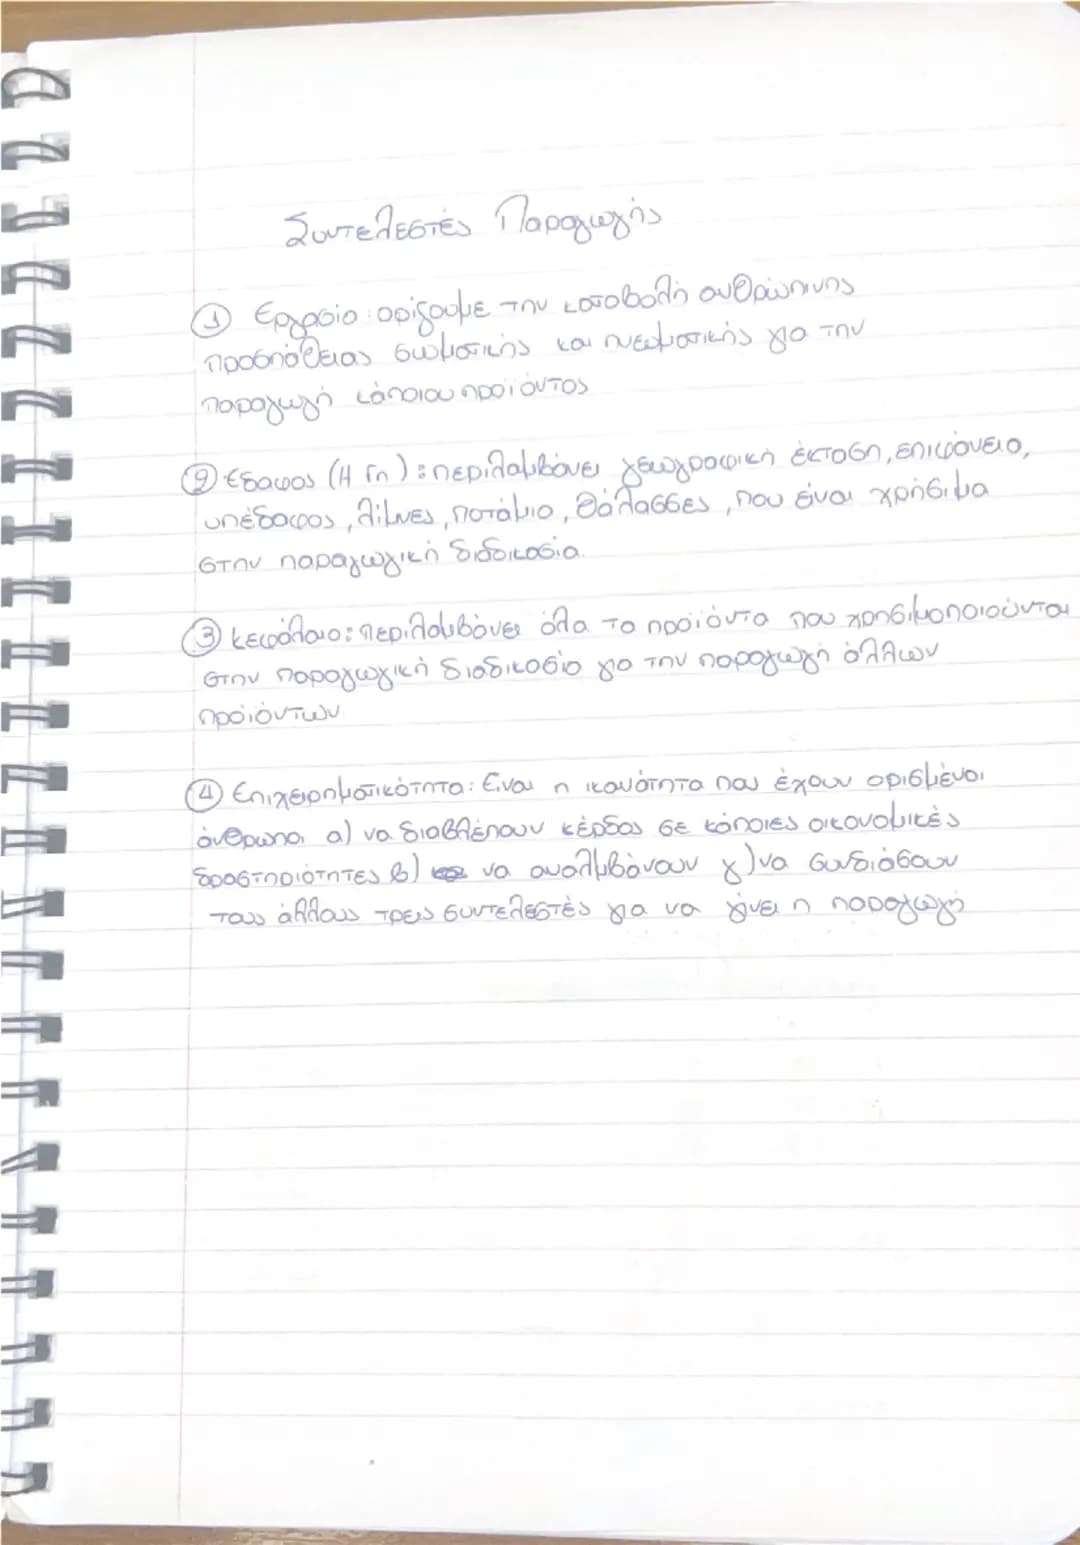 Συντελεστές Παραγωγής
① Εργασία: ορίζουμε την καταβολή ανθρώπινης
προσπάθειας σωματικής και πνευματικής για την
παραγωγή κάποιου προϊόντος
② Έδαφος (Η Γη): περιλαμβάνει γεωγραφική έκταση, επιφάνεια,
υπέδαφος, λίμνες, ποτάμια, θάλασσες, που είναι χρήσιμα
στην παραγωγική διδικασία.
③ Κεφάλαιο: περιλαμβάνει όλα τα προϊόντα που χρησιμοποιούνται
στην παραγωγική διαδικασία για την παραγωγή άλλων
προϊόντων
④ Επιχειρηματικότητα: Είναι η ικανότητα που έχουν ορισμένοι
άνθρωποι α) να διαβλέπουν κέρδος σε κάποιες οικονομικές
δραστηριότητες β) να αναλμβάνουν γ) να συνδιάσουν
τους άλλους τρεις συντελεστές για να γίνει η παραγωγή